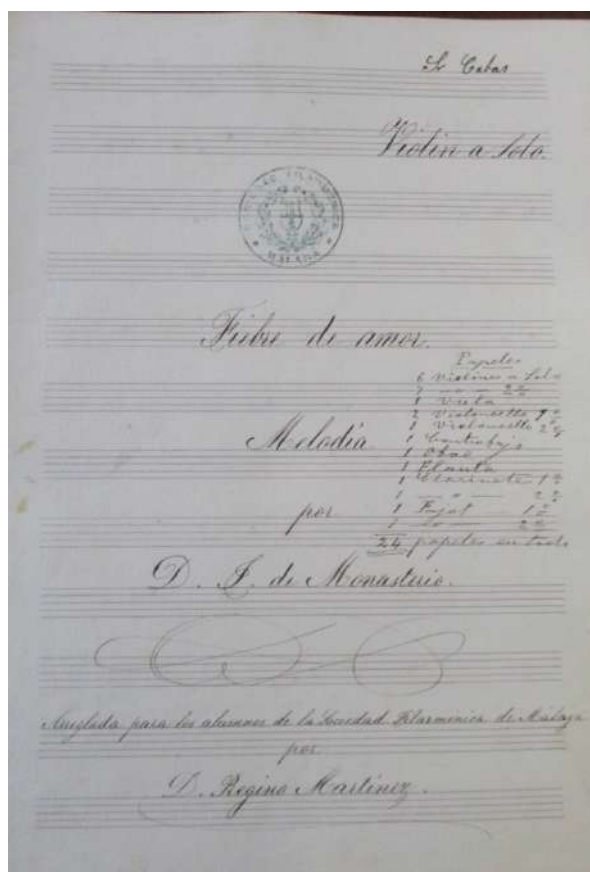 Sr Cabas
Violin a Solo.
SOCIEDAD FILARMONICA
MALAGA
Fiebre de amor.
Papeles
6 Violines a Solo
7 — 2º
1 Viola
2 Violoncello 1º
1 Violoncello 2º
Melodia
1 Contrabajo
1 Oboe
1 Flauta
1 Clarinete 1º
1 — " — 2º
por
1 Fajot 1º
1 — 2º
24 papeles en todo
D. J. de Monasterio.
Arreglada para los alumnos de la Sociedad Filarmónica de Málaga
por
D. Regino Martinez.